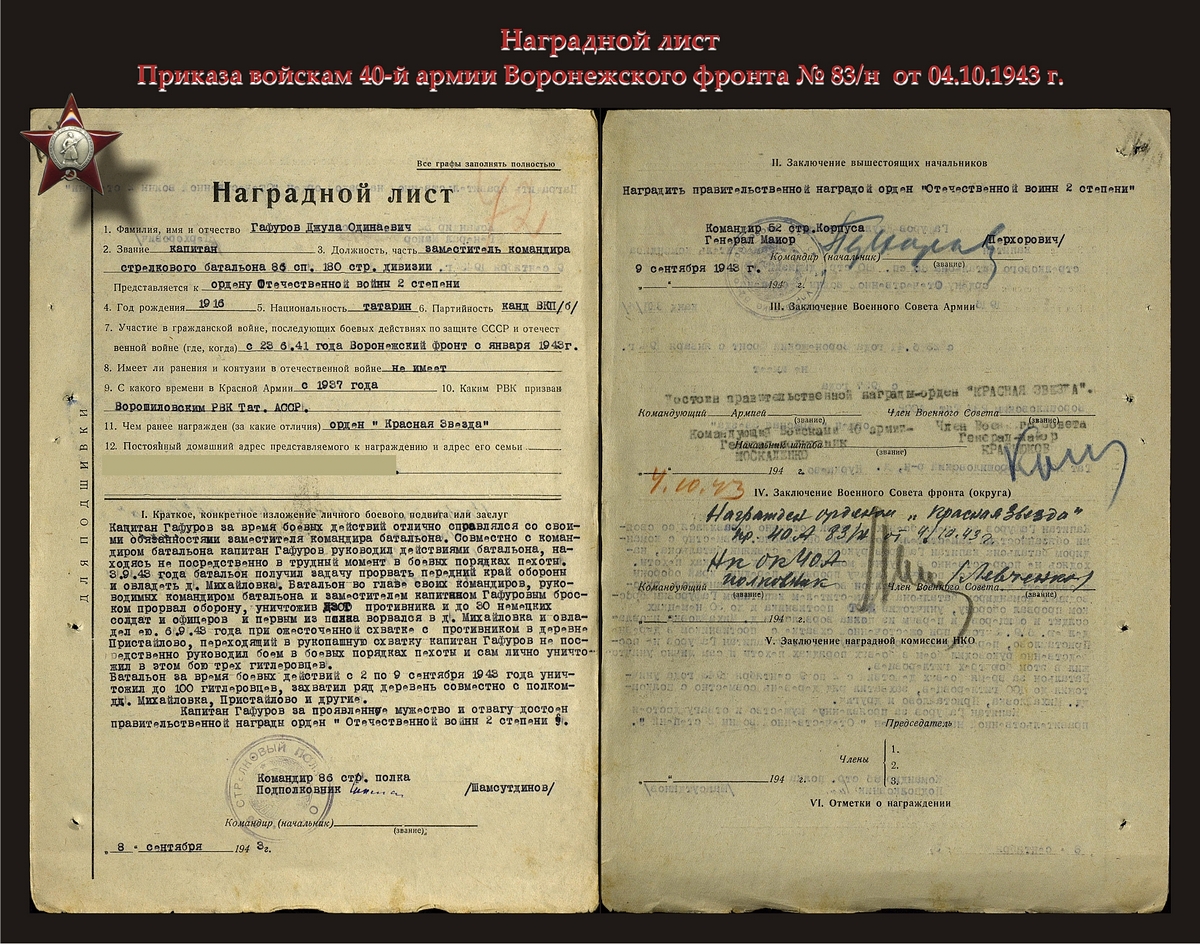 Наградной лист
Приказа войскам 40-й армии Воронежского фронта № 83/н от 04.10.1943 г.
Все графы заполнять полностью
Наградной лист
1. Фамилия, имя и отчество Гафуров Джула Одинаевич
2. Звание капитан 3. Должность, часть заместитель командира
стрелкового батальона 86 сп. 180 стр. дивизии.
Представляется к ордену Отечественной войны 2 степени
4. Год рождения 1916 5. Национальность татарин 6. Партийность канд ВКП/б/
7. Участие в гражданской войне, последующих боевых действиях по защите СССР и отечест
венной войне (где, когда) с 23 6.41 года Воронежский фронт с января 1943г.
8. Имеет ли ранения и контузии в отечественной войне не имеет
9. С какого времени в Красной Армии с 1937 года 10. Каким РВК призван
Ворошиловским РВК Тат. АССР.
11. Чем ранее награжден (за какие отличия) орден " Красная Звезда"
12. Постоянный домашний адрес представляемого к награждению и адрес его семьи
ДЛЯ ПОДШИВКИ
I. Краткое, конкретное изложение личного боевого подвига или заслуг
Капитан Гафуров за время боевых действий отлично справлялся со свои-
ми обязанностями заместителя командира батальона. Совместно с коман-
диром батальона капитан Гафуров руководил действиями батальона, на-
ходясь не посредственно в трудный момент в боевых порядках пехоты.
3.9.43 года батальон получил задачу прорвать передний край обороны
и овладеть д. Михайловка. Батальон во главе своих командиров, руко-
водимых командиром батальона и заместителем капитаном Гафуровым брос-
ком прорвал оборону, уничтожив ДЗОТ противника и до 30 немецких
солдат и офицеров и первым из полка ворвался в д. Михайловка и овла-
дел ею. 6.9.43 года при ожесточенной схватке с противником в деревне
Пристайлово, переходящий в рукопашную схватку капитан Гафуров не пос-
редственно руководил боем в боевых порядках пехоты и сам лично уничто-
жил в этом бою трех гитлеровцев.
Батальон за время боевых действий с 2 по 9 сентября 1943 года унич-
тожил до 100 гитлеровцев, захватил ряд деревень совместно с полком-
дд. Михайловка, Пристайлово и другие.
Капитан Гафуров за проявленную мужество и отвагу достоен
правительственной награды орден " Отечественной войны 2 степени ".
СТРЕЛКОВЫЙ
Командир 86 стр. полка
Подполковник /Шамсутдинов/
Командир (начальник)
(звание)
„ 8 " сентября 194 3г.
II. Заключение вышестоящих начальников
Наградить правительственной наградой орден "Отечественной воины 2 степени"
Командир 52 стр.Корпуса
Генерал Маиор /Перхорович/
Командир (начальник)
(звание)
9 сентября 1943 г.
„ " 194 г.
III. Заключение Военного Совета Армии
Достоин правительственной награды-орден "КРАСНАЯ ЗВЕЗДА".
Командующий Армией Член Военного Совета
(звание) (звание)
Командующий Войсками 40 армии- Член Воен. го совета
Начальник штаба
Генерал Майор
МОСКАЛЕНКО КРАЙНЮКОВ
(звание)
„ " 194 г.
4.10.43
IV. Заключение Военного Совета фронта (округа)
Награжден орденом „Красная Звезда"
пр. 40А 83/н от 4/10.43г.
Нк ок 40А
полковник /Левченко/
Командующий Член Военного Совета
(звание) (звание)
„ " 194 г.
V. Заключение наградной комиссии НКО
Председатель
Члены
1.
2.
3.
„ " 194 г.
VI. Отметки о награждении